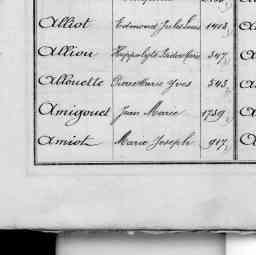 Alliot Edmond Jules Louis 1413
Alliou Hippolyte Isidore 347
Allouette Pierre Marie Yves 543
Amigouet Jean Marie 1739
Amiot Marie Joseph 917